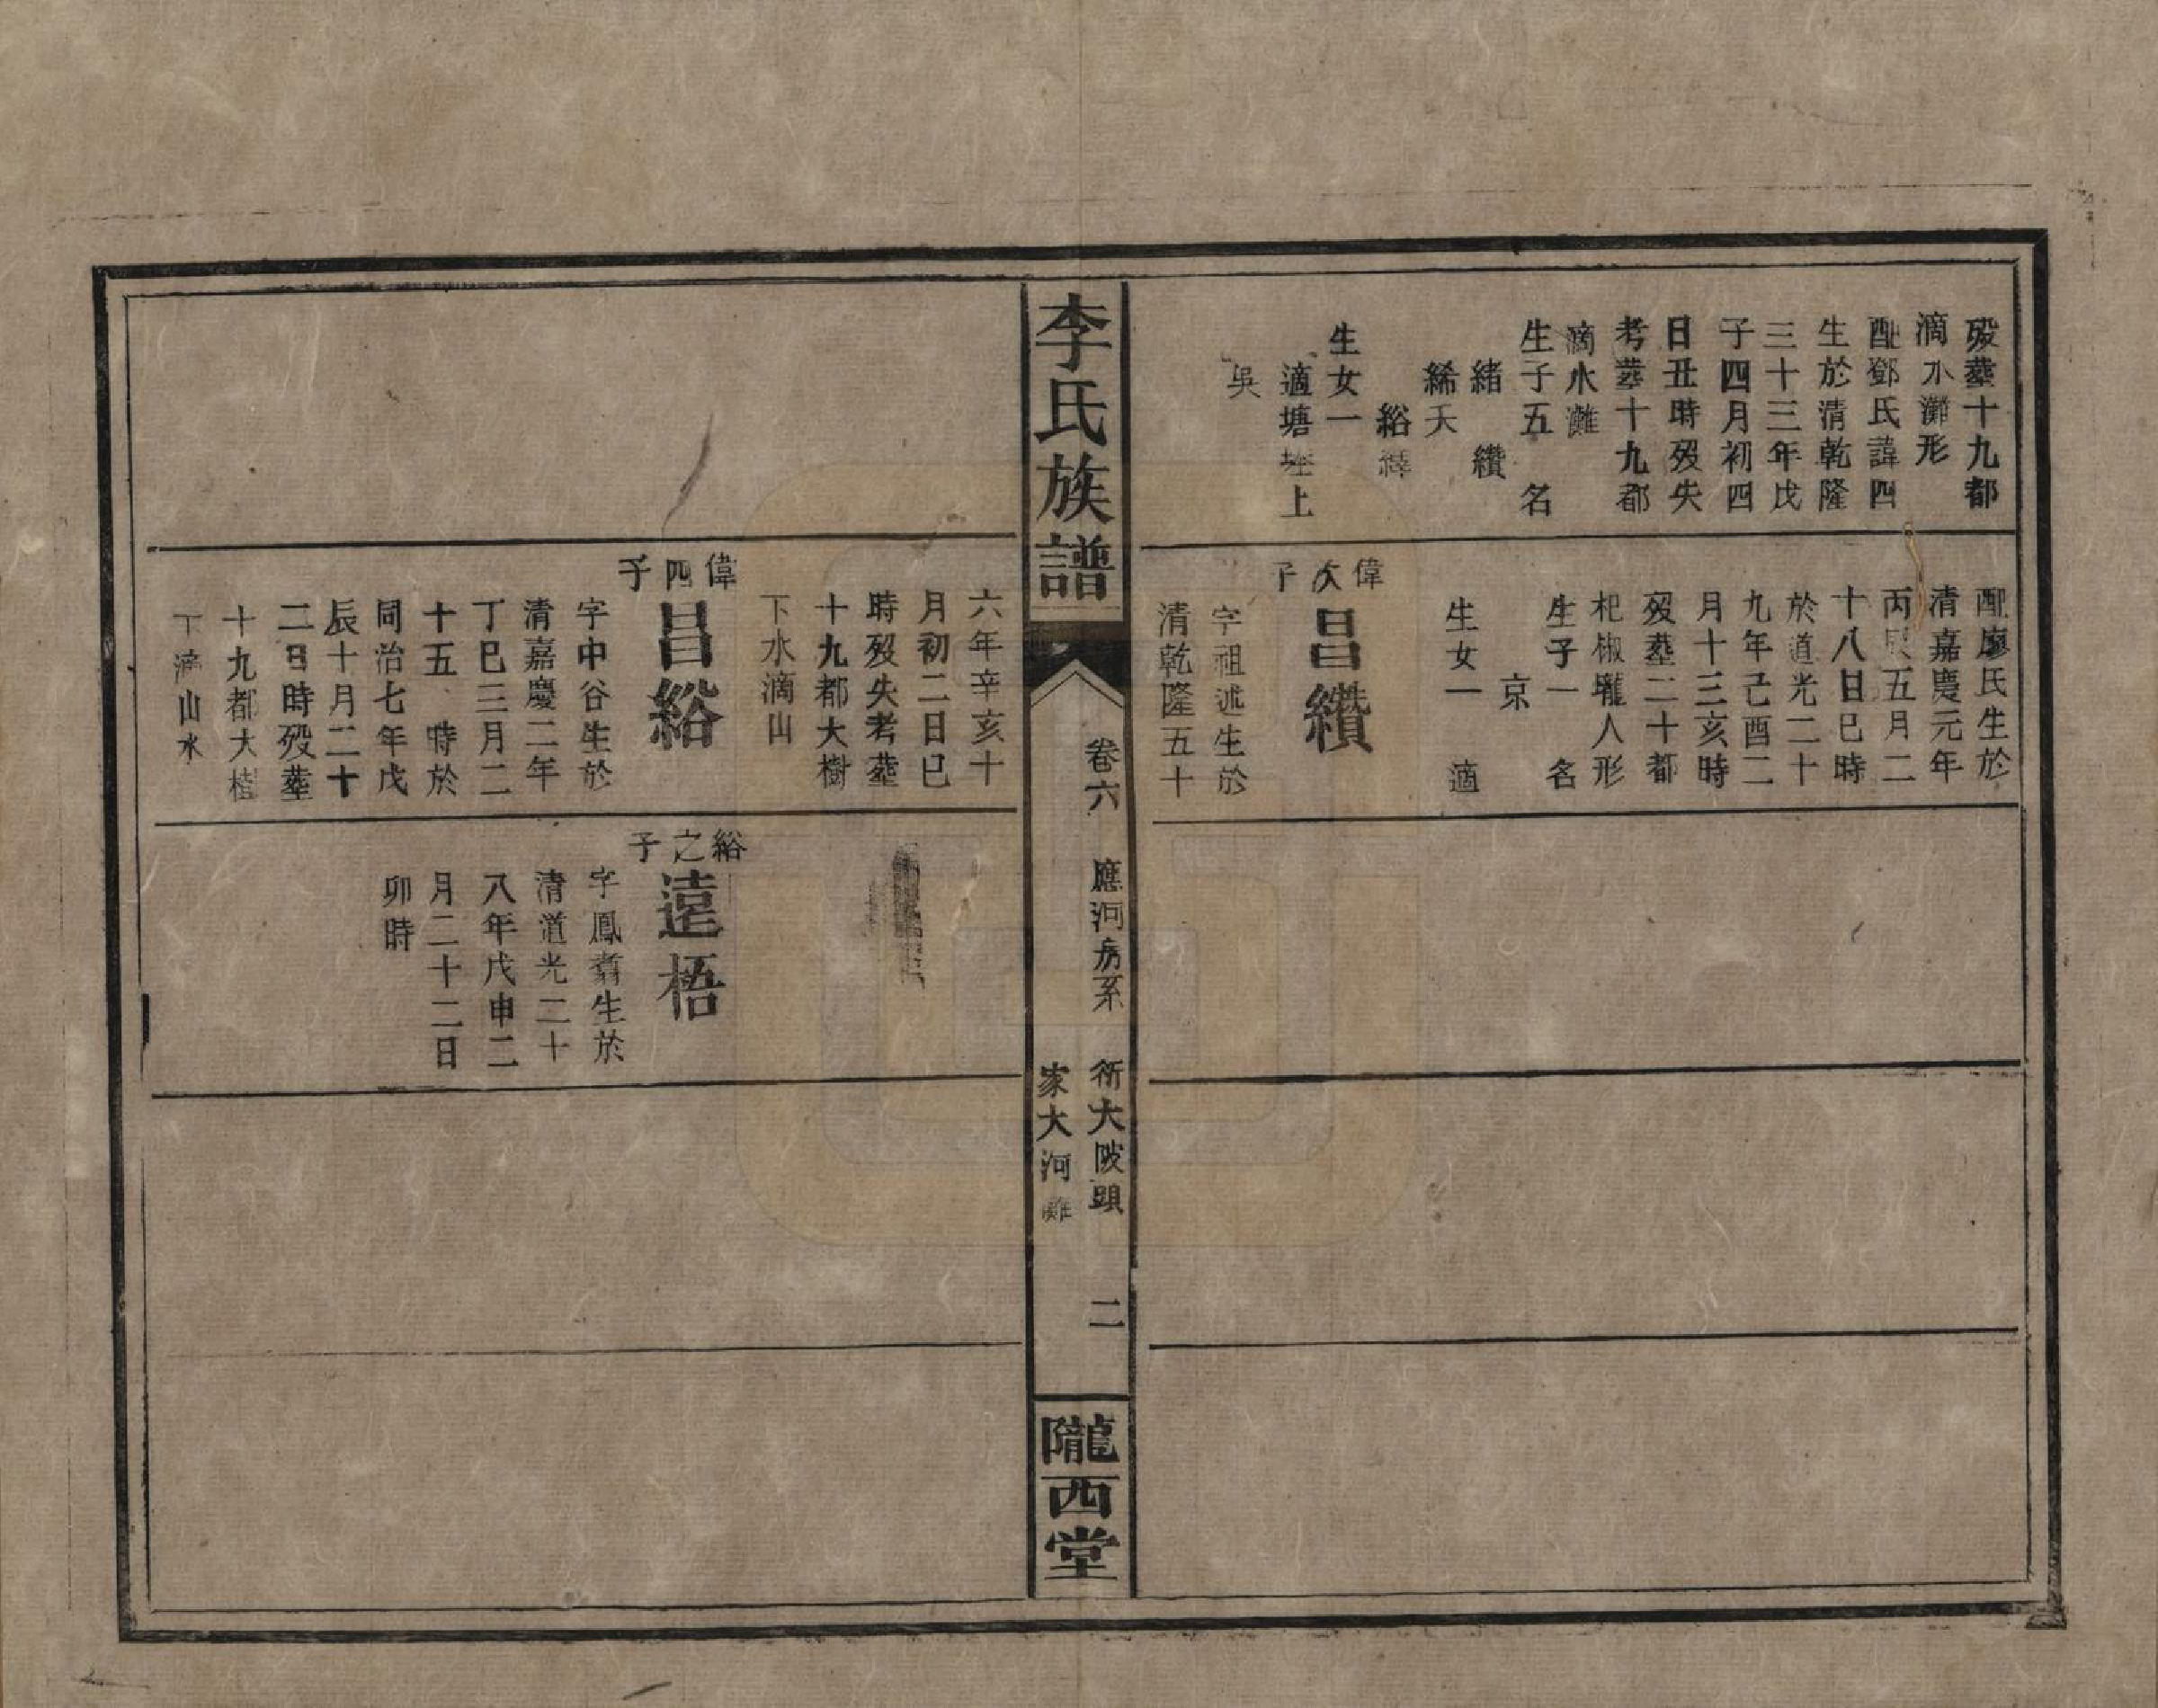 歿塟十九都
滴水灘形
配鄧氏諱四
生於清乾隆
三十三年戊
子四月初四
日丑時歿失
考塟十九都
滴水灘
生子五 名
緒 纘
絺夭
綌 繹
生女一
適塘 上
吳
配廖氏生於
清嘉慶元年
丙辰五月二
十八日巳時
於道光二十
九年己酉二
月十三亥時
歿塟二十都
杞椒壠人形
生子一 名
京
生女一 適
偉次子
昌纘
字祖述生於
清乾隆五十
李氏族譜
卷六
應河房系
衖大陂頭
家大河灘
二
隴西堂
六年辛亥十
月初二日巳
時歿失考塟
十九都大樹
下水滴山
偉四子
昌綌
字中谷生於
清嘉慶二年
丁巳三月二
十五 時於
同治七年戊
辰十月二十
二日時歿塟
十九都大樹
下滴山水
綌之子
遠梧
字鳳翥生於
清道光二十
八年戊申二
月二十二日
卯時